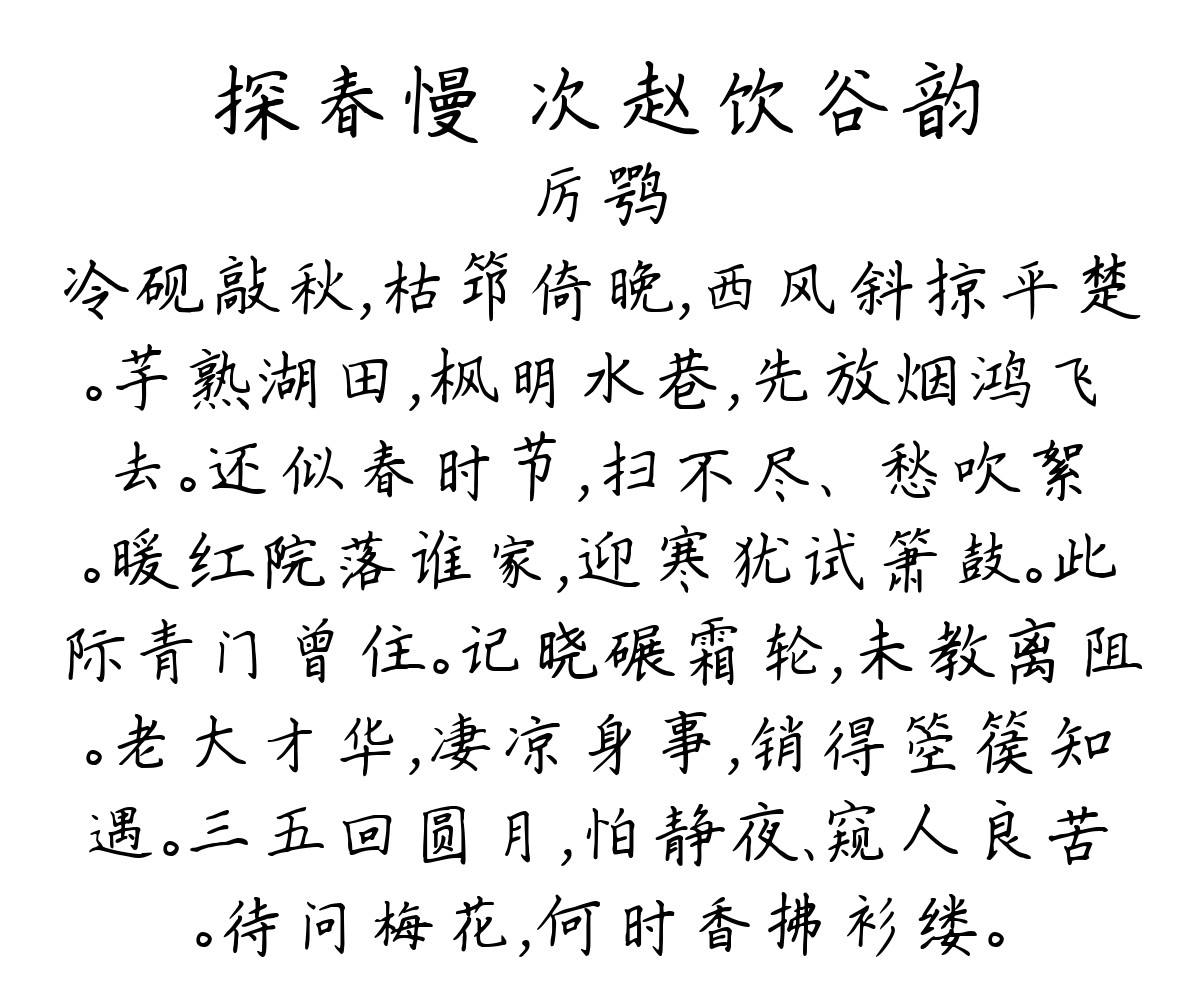 探春慢 次赵饮谷韵
厉鹗
冷砚敲秋,枯筇倚晚,西风斜掠平楚
。芋熟湖田,枫明水巷,先放烟鸿飞
去。还似春时节,扫不尽、愁吹絮
。暖红院落谁家,迎寒犹试箫鼓。此
际青门曾住。记晓碾霜轮,未教离阻
。老大才华,凄凉身事,销得箜篌知
遇。三五回圆月,怕静夜、窥人良苦
。待问梅花,何时香拂衫缕。